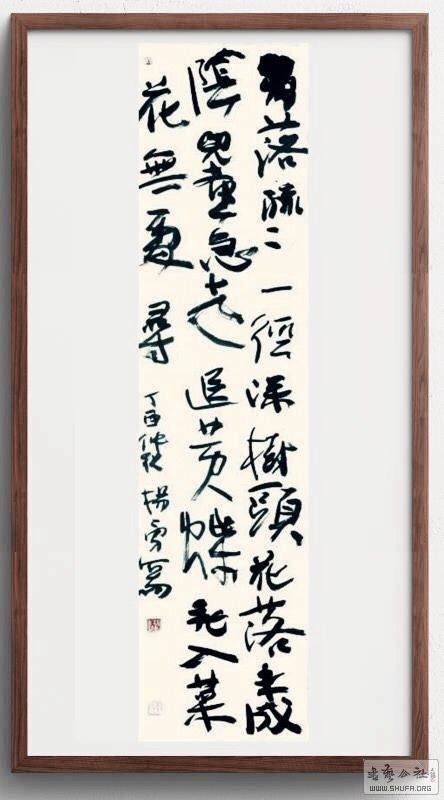 籬落疏〻一徑深樹頭花落未成
陰兒童急走追黃蝶飛入菜
花無處尋 丁酉 楊勇寫
書藝公社
WWW.SHUFA.ORG